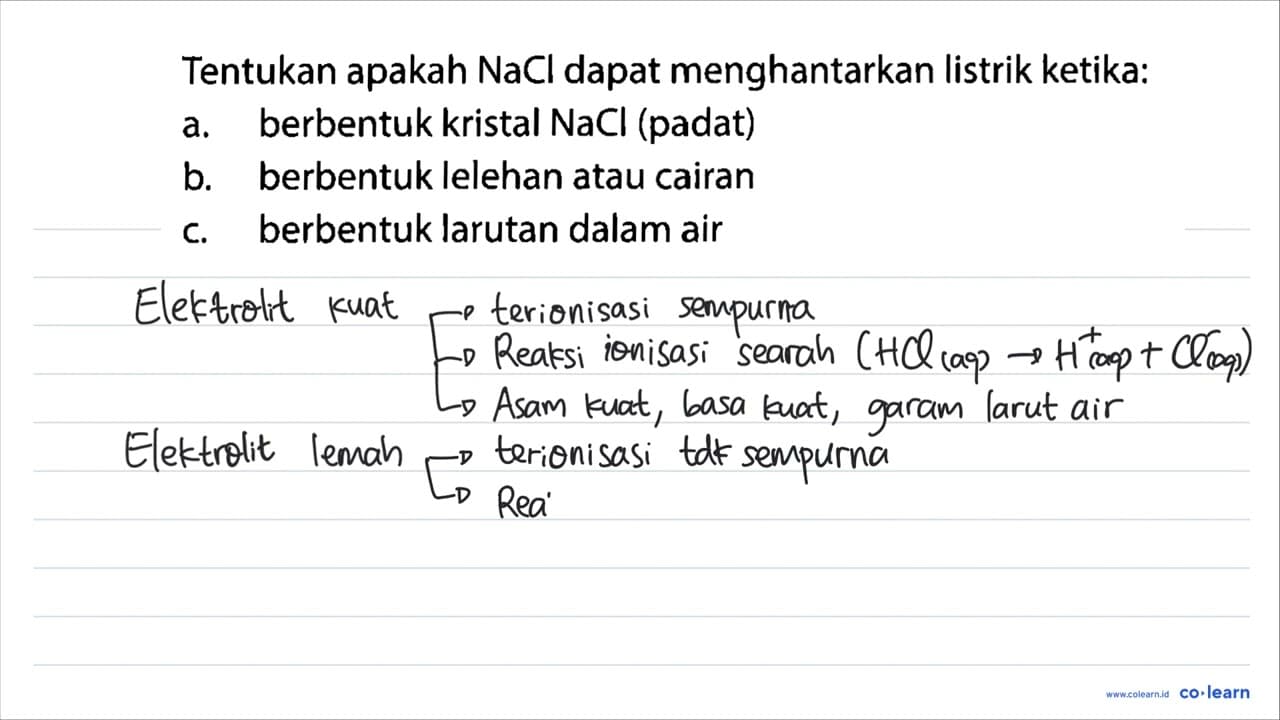 Tentukan apakah NaCl dapat menghantarkan listrik ketika:
a. berbentuk kristal NaCl (padat)
b. berbentuk lelehan atau cairan
c. berbentuk larutan dalam air
Elektrolit kuat → terionisasi sempurna
→ Reaksi ionisasi searah (HCl(aq) → H⁺(aq) + Cl⁻(aq))
→ Asam kuat, basa kuat, garam larut air
Elektrolit lemah → terionisasi tdk sempurna
→ Rea
www.colearn.id co·learn